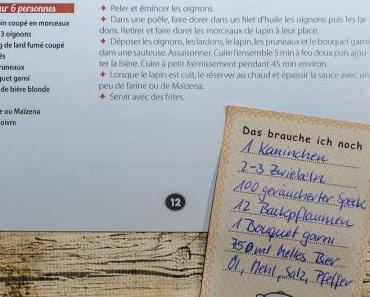 ur 6 personnes
pin coupé en morceaux
3 oignons
g de lard fumé coupé
és
runeaux
quet garni
de bière blonde
e ou Maïzena
oivre
✦ Peler et émincer les oignons.
✦ Dans une poêle, faire dorer dans un filet d'huile les oignons puis les lar-
dons. Retirer et faire dorer les morceaux de lapin à leur place.
✦ Déposer les oignons, les lardons, le lapin, les pruneaux et le bouquet garni
dans une sauteuse. Assaisonner. Cuire l'ensemble 5 min à feu doux puis ajou-
ter la bière. Cuire à petit frémissement pendant 45 min environ.
✦ Lorsque le lapin est cuit, le réserver au chaud et épaissir la sauce avec un
peu de farine ou de Maïzena.
✦ Servir avec des frites.
12
Das brauche ich noch
1 Kaninchen
2-3 Zwiebeln
100 geräucherter Speck
12 Backpflaumen
1 Bouquet garni
750 ml helles Bier
Öl, Mehl, Salz, Pfeffer